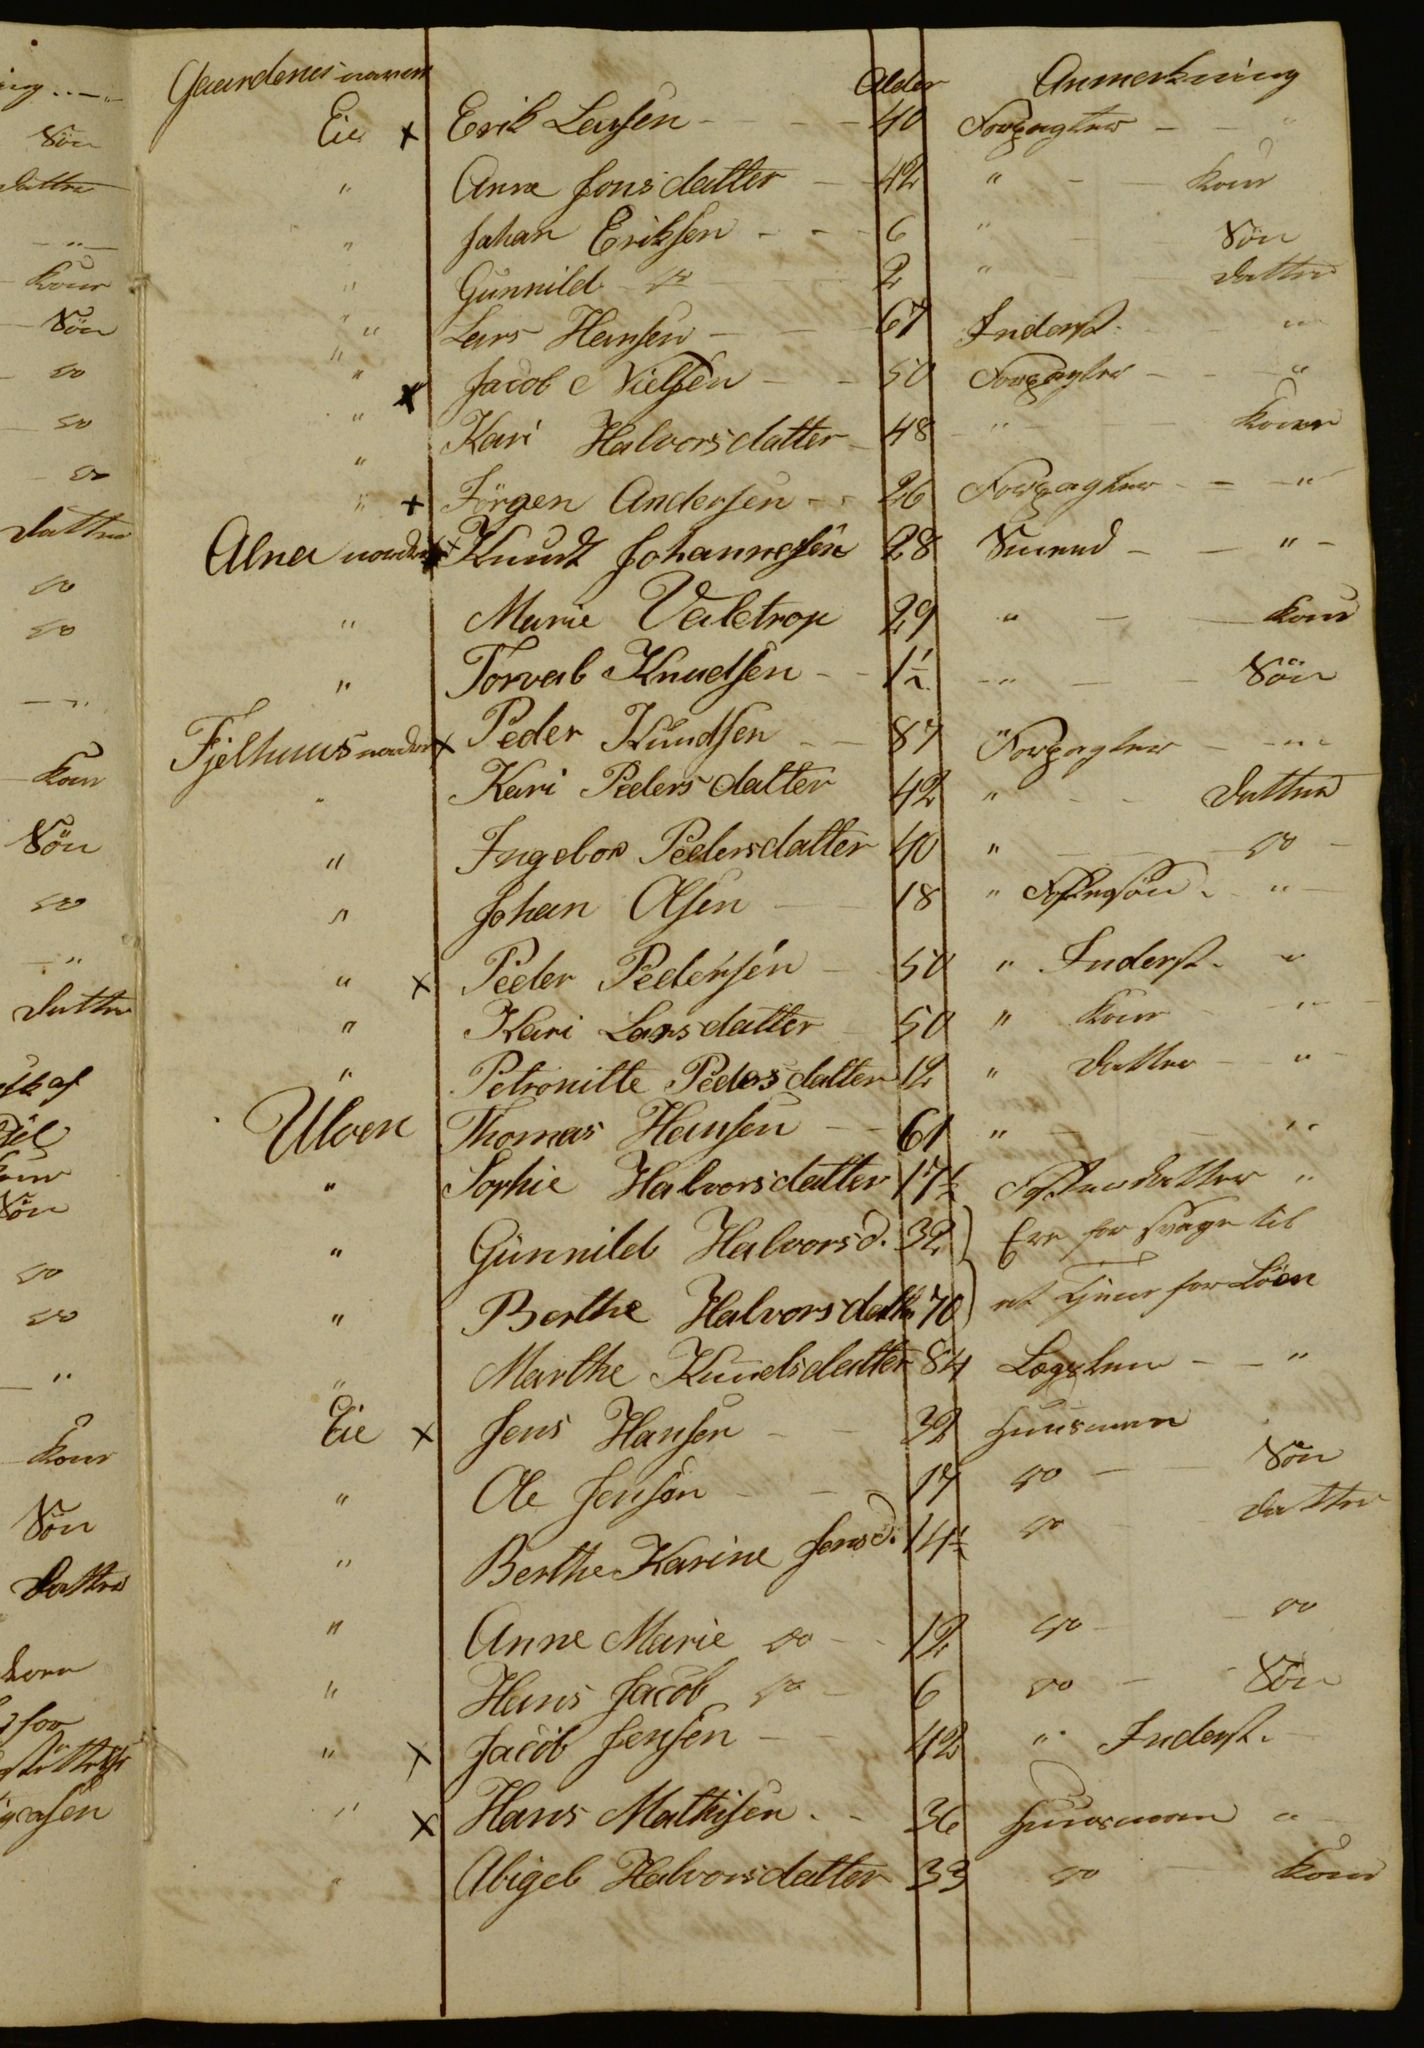 Gaardenes navn Alder Anmerkning
Eie x Erik Larsen - - - 40 Forpagter - - "
" Anne Jonsdatter - 42 " - - Kone
" Johan Eriksen - - - 6 " - Søn
" Gunnild do - - 2 " - Datter
" Lars Hansen - - 67 Inderst - - "
" x Jacob Nielsen - - 50 Forpagter - - "
" Kari Halvorsdatter - 48 " - - Kone
" x Jörgen Andersen - - 26 Forpagter - - "
Alna nordre x Knudt Johannesen 28 Smed - - " -
" Marie Valetrop 29 " - - Kone
" Torval Knudsen - - 1½ - " - - Søn
Fjelhuus nordre x Peder Knudsen - - 87 Forpagter - - "
" Kari Pedersdatter 42 " - - Datter
" Ingebor Pedersdatter 40 " - - do -
" Johan Olsen - - 18 " Fostersøn - "
" x Peder Pedersen - 50 " Inderst - "
" Kari Larsdatter - 50 " Kone - "
" Petronille Pedersdatter 12 " Datter - "
Ulven Thomas Hansen - - 61 " - - "
" Sophie Halvorsdatter 17½ Fosterdatter "
" Gunnild Halvorsd. 32 } Ere for svage til
" Berthe Halvorsdatter 70 } at tjene for Löen
" Marthe Knudsdatter 84 Lægslem - - "
Eie x Jens Hansen - - 32 Huusmann
" Ole Jensen - - 17 do - Søn
" Berthe Karine Jensd. 14½ do - Datter
" Anne Marie do - - 12 do - - do
" Hans Jacob do - 6 do - Søn
" x Jacob Jensen - - 42 " Inderst -
" x Hans Mathisen - - 36 Huusmann "
" Abigel Halvorsdatter 33 do - Kone